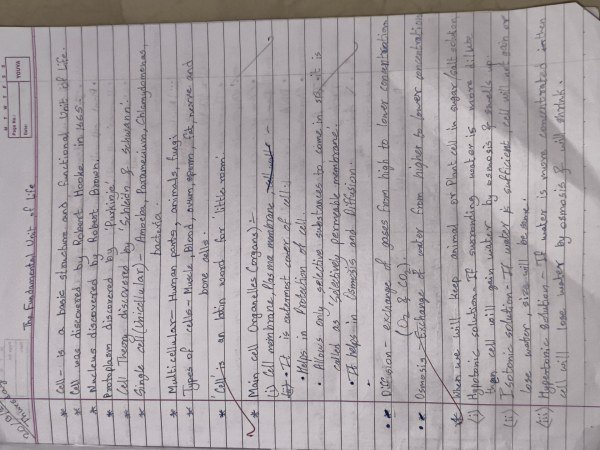 M T W T F S S
Page No.:
Date:
YOUVA
The Fundamental Unit of Life
* Cell - is a basic structure and functional Unit of Life.
* Cell was discovered by Robert Hooke in 1665.
* Nucleus discovered by Robert Brown.
* Protoplasm discovered by 'Purkinje'
* Cell Theory discovered by 'Schleiden & Schwann'.
* Single cell (Unicellular) - Amoeba, Paramecium, Chlamydomonas,
bacteria.
* Multicellular - Human parts, animals, fungi
* Types of cells - Muscle, Blood, ovum, sperm, fat, nerve and
bone cells.
* 'Cell' is an latin word for 'little room'.
* Main Cell Organelles (organs) :-
(i) Cell membrane, Plasma membrane, -
• It is outermost cover of cell.
• Helps in Protection of cell.
• Allows only selective substances to come in so, it is
called as 'Selectively permeable membrane'.
• It helps in Osmosis and Diffusion.
•
• * Diffusion - exchange of gases from high to lower concentration
(O2 & CO2)
• * Osmosis - Exchange of water from higher to lower concentration
* When we will keep animal or Plant cell in sugar/salt solution
(i) Hypotonic solution - If surrounding water is more dilute
than cell will gain water by osmosis & swells up.
(ii) Isotonic solution - If water is sufficient, cell will not gain or
lose water, size will be same.
(iii) Hypertonic Solution - If water is more concentrated then
cell will lose water by osmosis & will shrink.